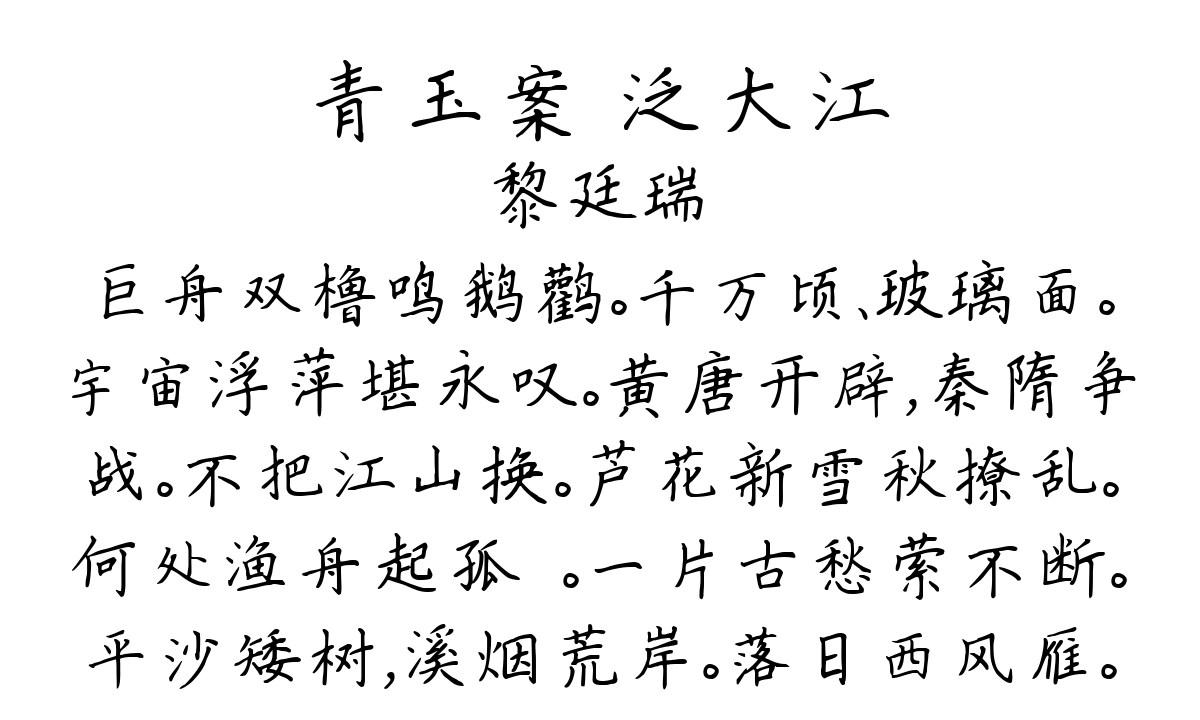 青玉案 泛大江
黎廷瑞
巨舟双橹鸣鹅鹳。千万顷、玻璃面。
宇宙浮萍堪永叹。黄唐开辟,秦隋争
战。不把江山换。芦花新雪秋撩乱。
何处渔舟起孤 。一片古愁萦不断。
平沙矮树,溪烟荒岸。落日西风雁。